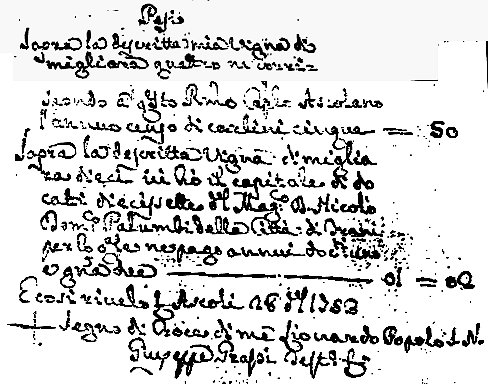 Pesi
Sopra la descritta mia Vigna di
migliara quattro ne corri=
spondo a q̃sto Rm̃o Caplo Ascolano
l'annuo censo di carlini cinque = 50
Sopra la descritta Vigna di miglia
ra dieci vi hò il capitale di do
cati diecissette d͠l Mag.º D. Nicolò
Dom.º Palumbi della Città di Trani
per lo q̃le ne pago annui docti uno
e gr̃a due — 01 = 02
E così rivelo Ascoli 26 1753
+ Segno di Croce di me Lionardo Popolo
Giuseppe Prassi Test: